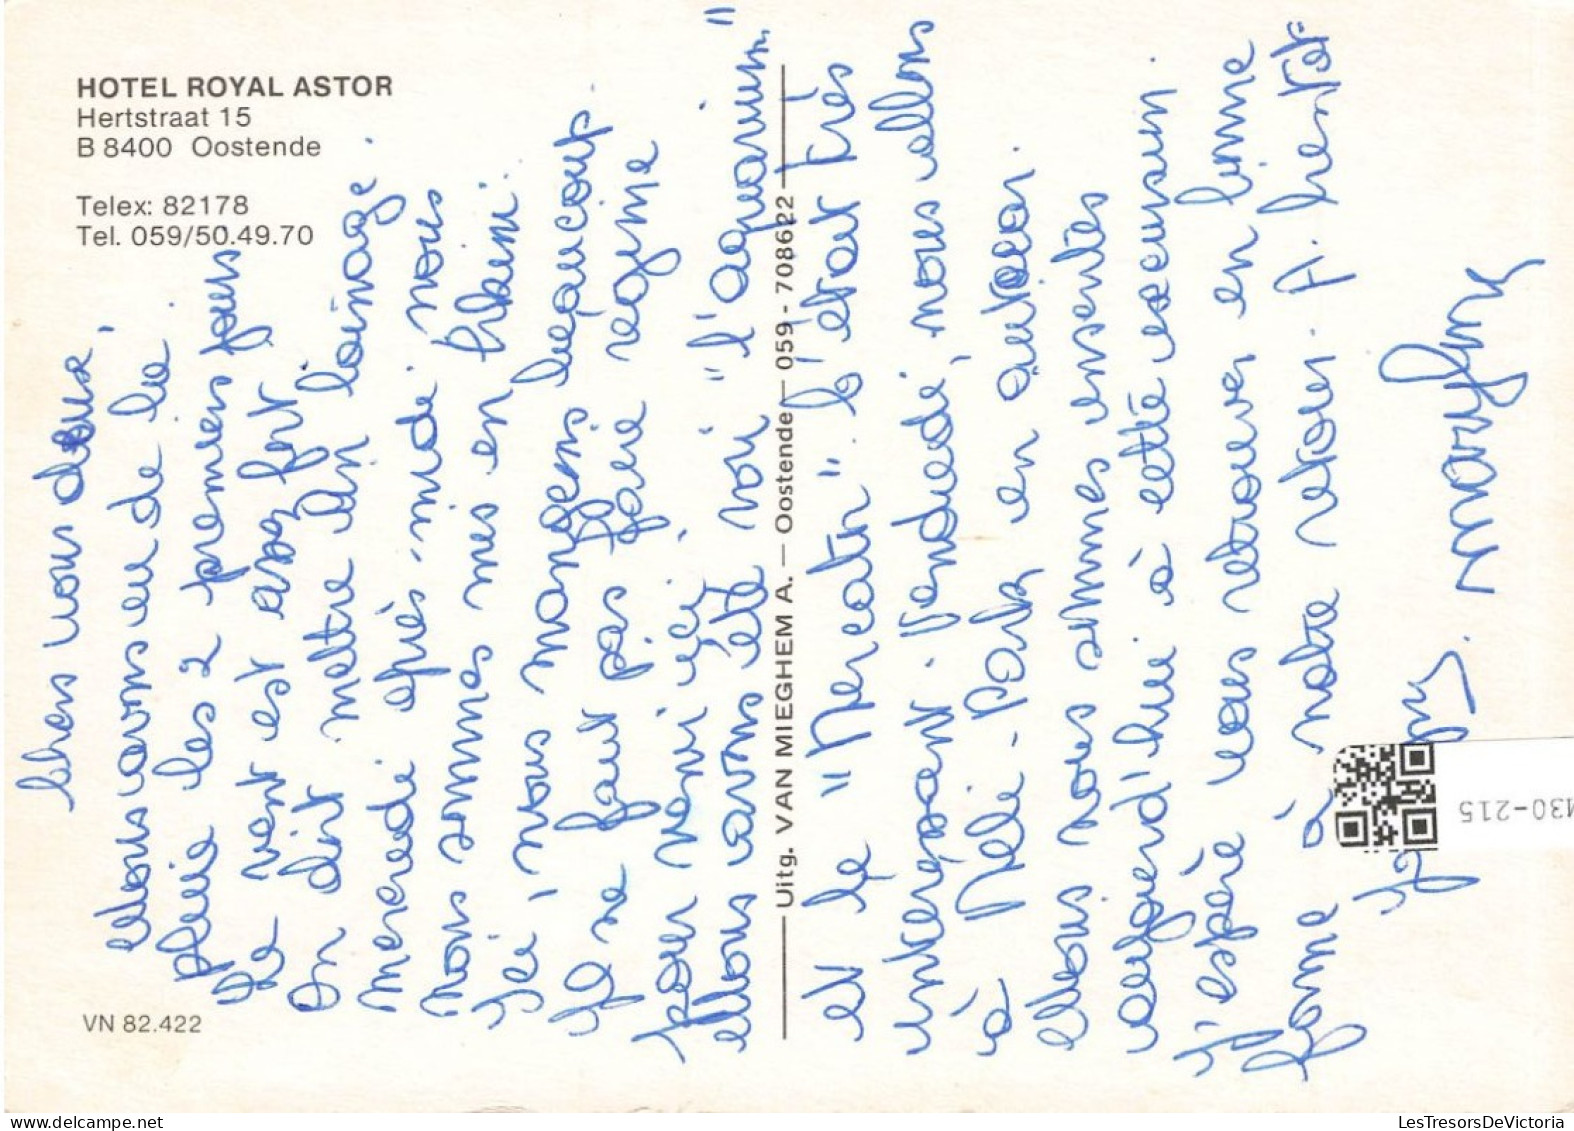 HOTEL ROYAL ASTOR
Hertstraat 15
B 8400 Oostende
Telex: 82178
Tel. 059/50.49.70
VN 82.422
Uitg. VAN MIEGHEM A. — Oostende — 059 - 708622
Chers vous deux,
Nous avons eu de la
pluie les 2 premiers jours
Le vent est assez fort
On dit mettre loinage.
Mercredi après-midi nous
Nous sommes mis en bikini.
Ici, nous mangeons beaucoup.
Il ne faut pas faire régime
pour venir ici.
Nous avons été voir "l'aquarium"
et le "Mercator". C'était très
intéressant. Vendredi, nous allons
à Meli-Park en autocar.
Nous nous sommes inscrites
aujourd'hui à cette excursion.
J'espère vous retrouver en bonne
forme à notre retour. A bientôt
Maryline
M30-215
LesTresorsDeVictoria